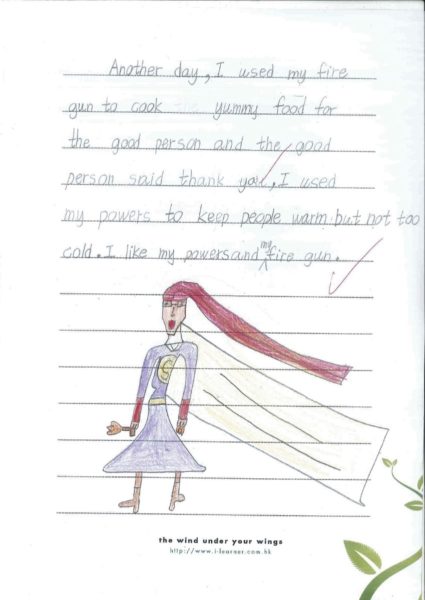 Another day, I used my fire
gun to cook yummy food for
the good person and the good
person said thank you, I used
my powers to keep people warm but not too
cold. I like my powers and my fire gun.
the wind under your wings
http://www.i-learner.com.hk